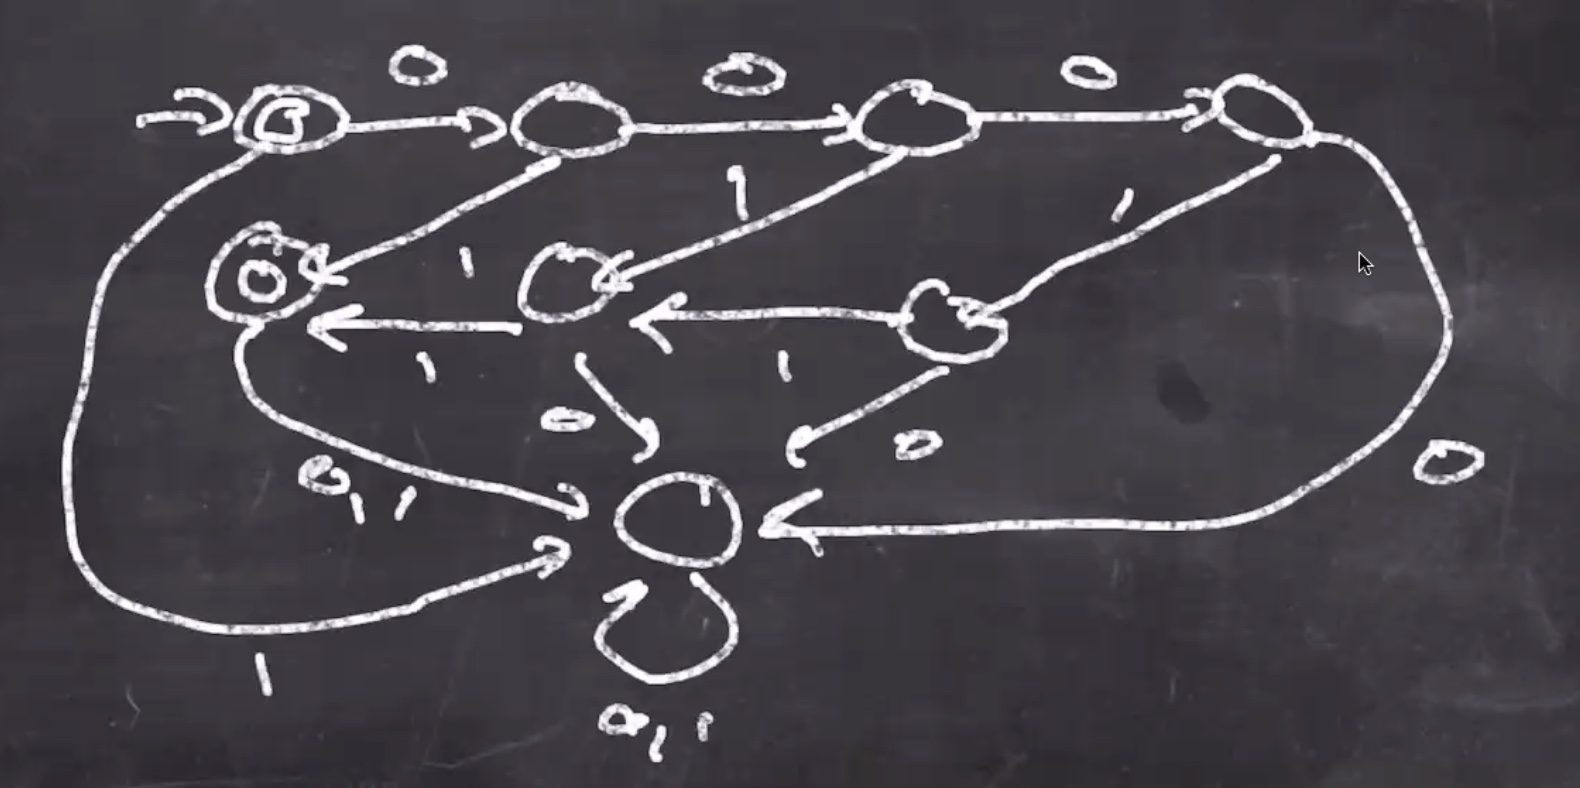 0 0 0
1
1
1
1 1
0
0
0
0,1
1
0,1